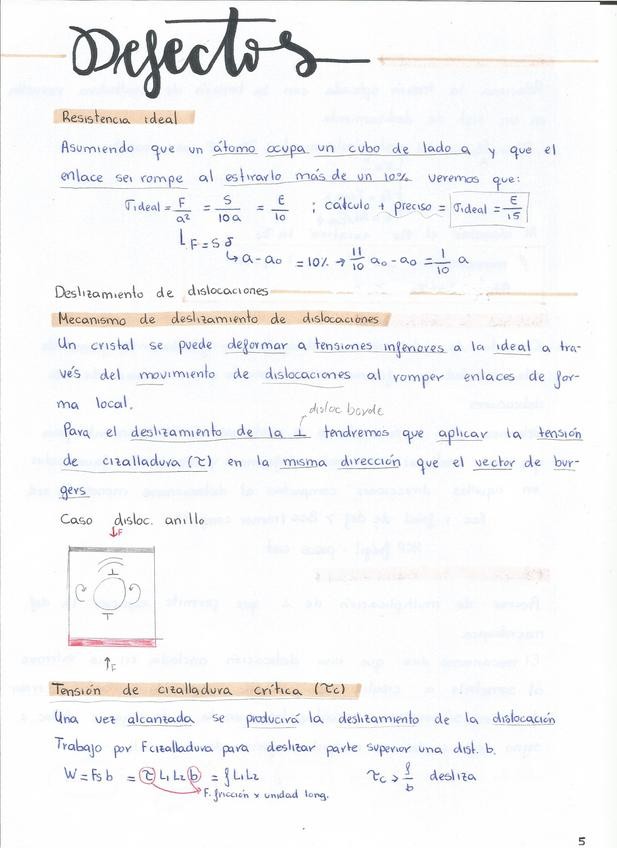 Defectos
Resistencia ideal
Asumiendo que un átomo ocupa un cubo de lado a y que el
enlace sei rompe al estirarlo más de un 10% veremos que:
σideal = F/a² = S/10a = E/10 ; cálculo + preciso = σideal = E/15
F = S δ
a - a₀ = 10% → 11/10 a₀ - a₀ = 1/10 a
Deslizamiento de dislocaciones
Mecanismo de deslizamiento de dislocaciones
Un cristal se puede deformar a tensiones inferiores a la ideal a tra-
vés del movimiento de dislocaciones al romper enlaces de for-
ma local.
disloc borde
Para el deslizamiento de la ⊥ tendremos que aplicar la tensión
de cizalladura (τ) en la misma dirección que el vector de bur-
gers
Caso disloc. anillo
F
⊥
⊥
F
Tensión de cizalladura crítica (τc)
Una vez alcanzada se producirá la deslizamiento de la dislocación
Trabajo por F cizalladura para deslizar parte superior una dist. b.
W = Fs b = τ L₁ L₂ b = f L₁ L₂ τc > f/b desliza
F. fricción x unidad long.
5